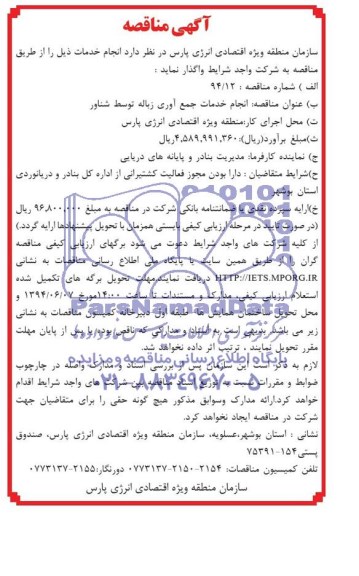 آگهی مناقصه
سازمان منطقه ویژه اقتصادی انرژی پارس در نظر دارد انجام خدمات ذیل را از طریق
مناقصه به شرکت واجد شرایط واگذار نماید :
الف ) شماره مناقصه : ۹۴/۱۲
ب) عنوان مناقصه: انجام خدمات جمع آوری زباله توسط شناور
ت) محل اجرای کار:منطقه ویژه اقتصادی انرژی پارس
ث)مبلغ برآورد(ریال): ۴,۵۸۹,۹۹۱,۳۶۰ریال
ج) نماینده کارفرما: مدیریت بنادر و پایانه های دریایی
ح)شرایط متقاضیان : دارا بودن مجوز فعالیت کشتیرانی از اداره کل بنادر و دریانوردی
استان بوشهر
خ)ارایه سپرده نقدی یا ضمانتنامه بانکی شرکت در مناقصه به مبلغ ۹۶,۸۰۰,۰۰۰ ریال
(در صورت تایید در مرحله ارزیابی کیفی بایستی همزمان با تحویل پیشنهادها ارایه گردد.)
از کلیه شرکت های واجد شرایط دعوت می شود برگهای ارزیابی کیفی مناقصه
گران را از طریق همین سایت یا پایگاه ملی اطلاع رسانی مناقصات به نشانی
HTTP://IETS.MPORG.IR دریافت نمایند.مهلت تحویل برگه های تکمیل شده
استعلام ارزیابی کیفی، مدارک و مستندات تا ساعت ۱۴:۰۰مورخ ۱۳۹۴/۰۶/۰۷ و
محل تحویل ساختمان همایش ها طبقه اول دبیرخانه کمیسیون مناقصات به نشانی
زیر می باشد. بدیهی است به اسناد و مدارکی که ناقص بوده یا پس از پایان مهلت
مقرر تحویل نمایند ، ترتیب اثر داده نخواهد شد.
لازم به ذکر است این سازمان پس از بررسی اسناد و مدارک واصله در چارچوب
ضوابط و مقررات نسبت به توزیع اسناد مناقصه بین شرکت های واجد شرایط اقدام
خواهد کرد.ارائه مدارک وسوابق مذکور هیچ گونه حقی را برای متقاضیان جهت
شرکت در مناقصه ایجاد نخواهد کرد.
نشانی : استان بوشهر،عسلویه، سازمان منطقه ویژه اقتصادی انرژی پارس، صندوق
پستی۱۵۴-۷۵۳۹۱
تلفن کمیسیون مناقصات: ۲۱۵۴-۲۱۵۰-۰۷۷۳۱۳۷ دورنگار:۲۱۵۵-۰۷۷۳۱۳۷
سازمان منطقه ویژه اقتصادی انرژی پارس
ParsNamadData
پایگاه اطلاع رسانی مناقصه و مزایده
۰۲۱-۸۸۳۴۹۶۷۰-۵